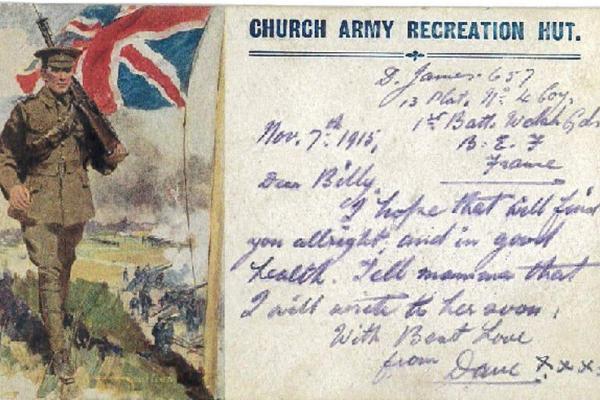 CHURCH ARMY RECREATION HUT.
D. James. 657
13 Plat. No 4 Coy.
1st Batt. Welsh Gds
Nov. 7th 1915,
B. E. F
France
Dear Billy.
I hope that will find
you allright, and in good
health. Tell mamma that
I will write to her soon,
With Best Love
from Dave x x x